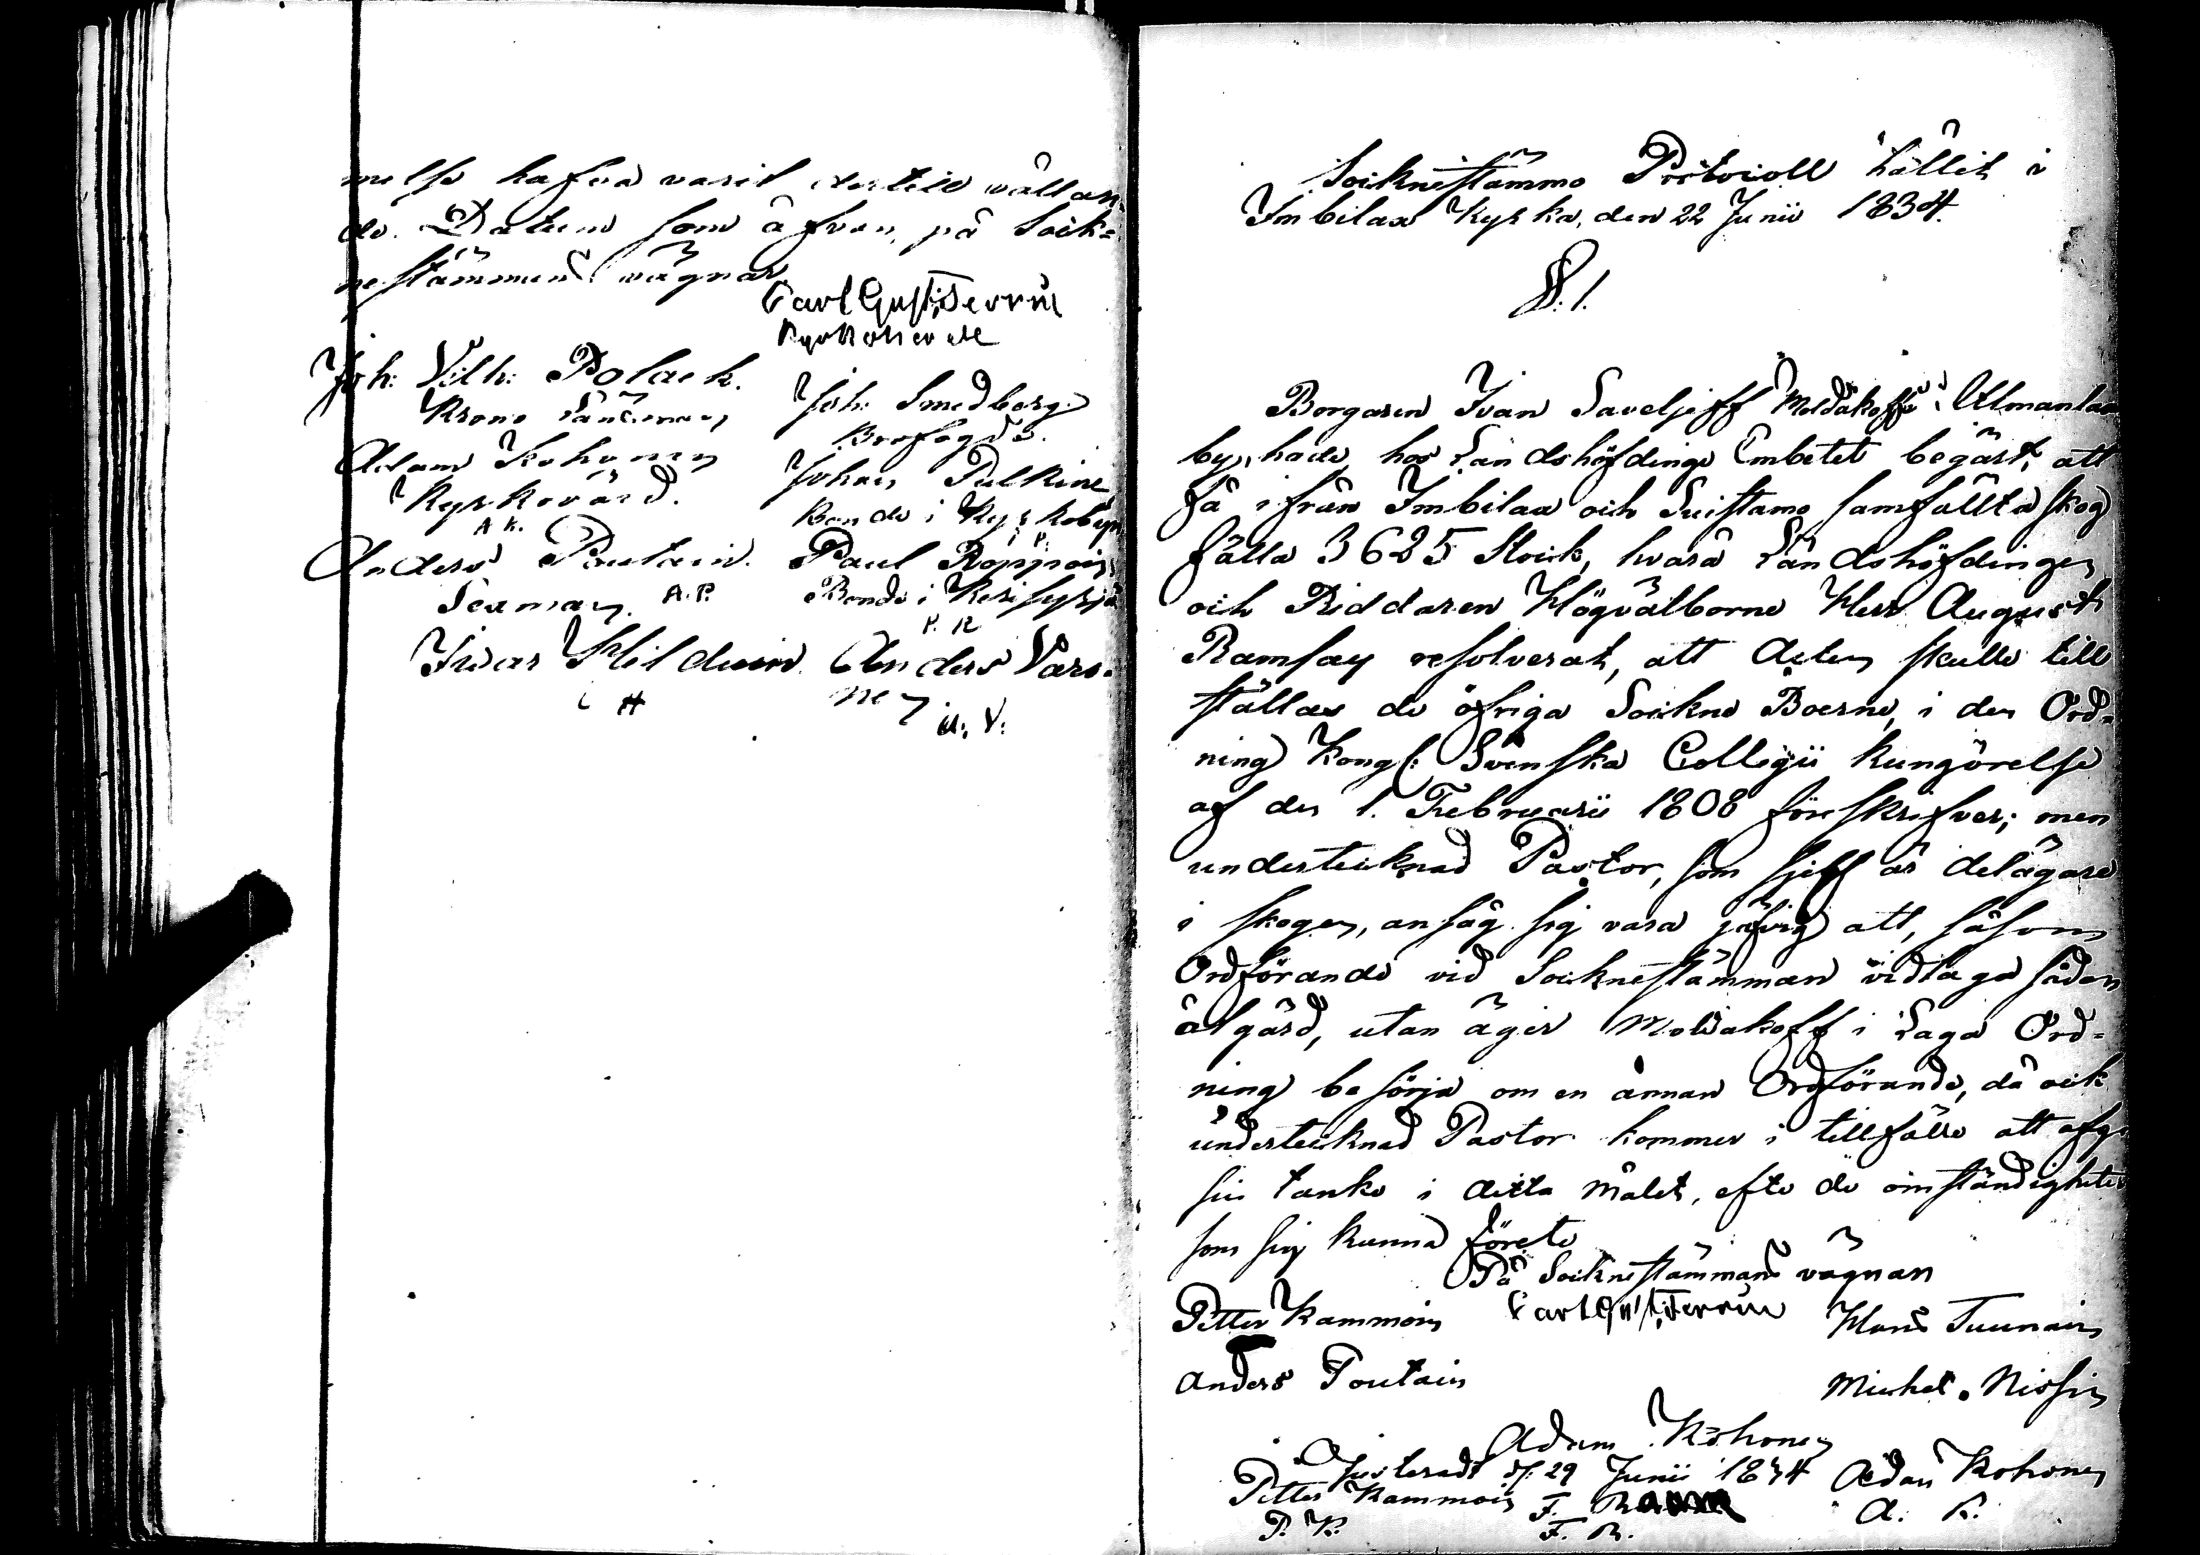 melse hafva varit dertill vållan¬
de. Datum som åfvan, på Sock=
nestämmans vägnar
Carl Gust: Ferrin
Kyrkoherde
Joh: Vilh: Polack.
Krono Länsman
Joh: Smedberg
Brofogde.
Adam Kohonen
Kyrkovärd.
A K.
Johan Pulkine
Bonde i Kyrkobyn
P.
Anders Poutain.
Sexman. A.P.
Paul Roppoin
Bonde i Kerisyrjä
P. R
Ivar Hilduin.
i H
Anders Varo¬
nen
A. V.
Socknestämmo Protocoll hållit i
Imbilax Kyrka, den 22 Junii 1834.
§. 1.
Borgaren Ivan Saveljeff Moldakoff i Ulmanlax
by, hade hos Landshöfdinge Embetet begärt, att
få ifrån Imbilax och Suistamo samfällta skog
fälla 3625 Stock, hvarå Landshöfdingen
och Riddaren Högvälborne Herr August
Ramsay resolverat, att Acten skulle till
ställas de öfriga Sockne Boerne, i den Ord=
ning Kongl: Svenska Collegii Kungörelse
af den 1. Februarii 1808 föreskrifver; men
undertecknad Pastor, som sjelf är delägare
i skogen, ansåg sig vara jäfvig att, såsom
Ordförande vid Socknestämman vidtaga sådan
åtgärd, utan äger Moldakoff i Laga Ord=
ning besörja om en annan Ordförande, då ock
undertecknad Pastor kommer i tillfälle att afge
sin tanke i detta målet, efter de omständigheter
som sig kunna förete
På Socknestämmans vägnar
Petter Kammoin Carl Gust: Ferrin Hans Tuunain
Anders Poutain Michel Nissin
Adam Kohonen
Justeradt d. 29 Junii 1834 Adam Kohonen
Petter Kammoin F. A. K.
P. K. F. R.